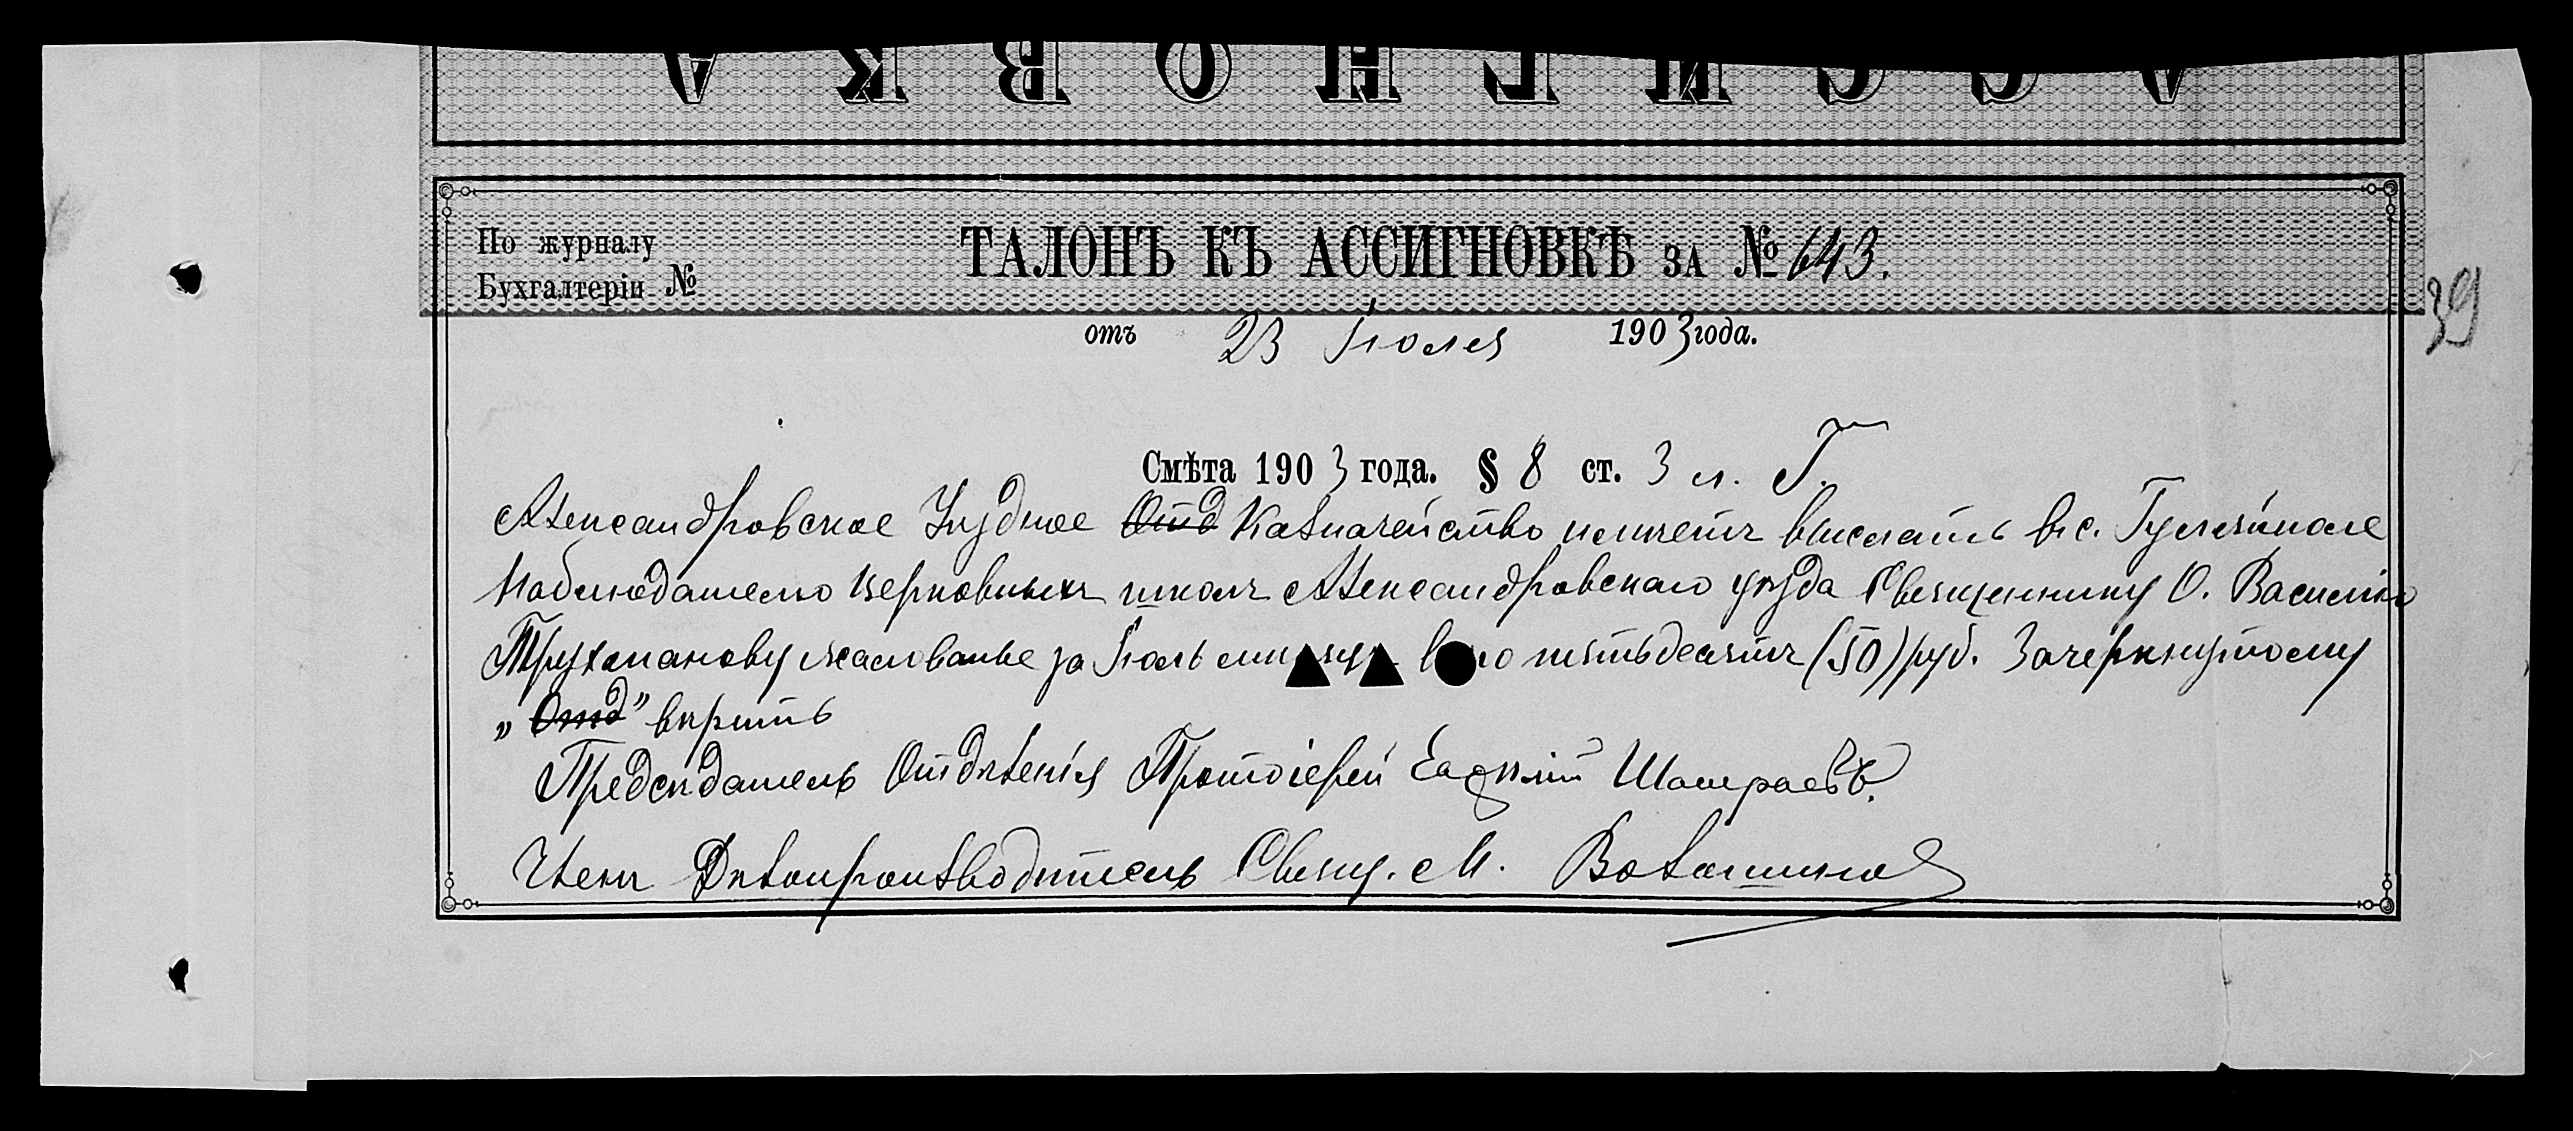 АССИГНОВКА
По журналу
Бухгалтеріи №
ТАЛОНЪ КЪ АССИГНОВКѢ ЗА № 643.
39
отъ 23 Іюля 1903 года.
Смѣта 1903 года. § 8 ст. 3 л. Г.
Александровское Уѣздное Отд Казначейство имѣетъ выслать въ с. Гуляйполе
Наблюдателю церковныхъ школъ Александровскаго уѣзда Священнику О. Василію
Трухманову жалованье за Іюль пятьдесятъ (50) руб. Зачеркнутому
„Отд” вѣрить
Предсѣдатель Отдѣленія Протоіерей
Членъ Дѣлопроизводитель Свящ. М.